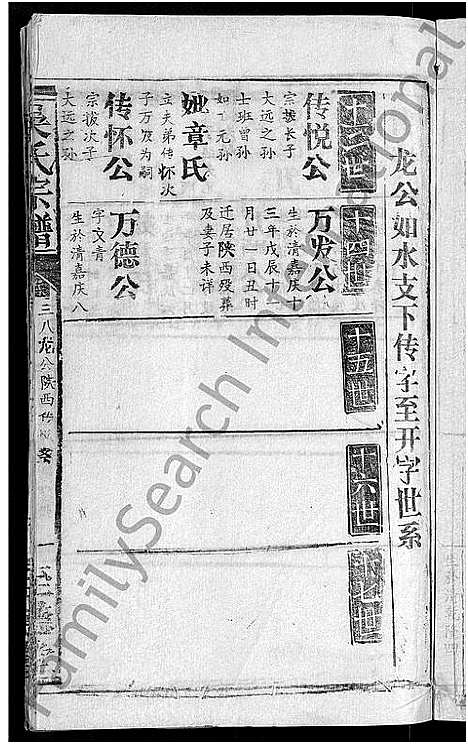 龙公如水支下传字至开字世系
十三世
传悦公
宗拔长子
大远之孙
士班曾孙
如十元孙
妣章氏
立夫弟传怀次
子万发为嗣
传怀公
宗拔次子
大远之孙
十四世
万发公
生於清嘉庆十
三年戊辰十
月廿一日丑时
迁居陕西殁葬
及妻子未详
万德公
字文青
生於清嘉庆八
十五世
十六世
十七世
吴氏宗谱
三八龙公陕西
一
FamilySearch International